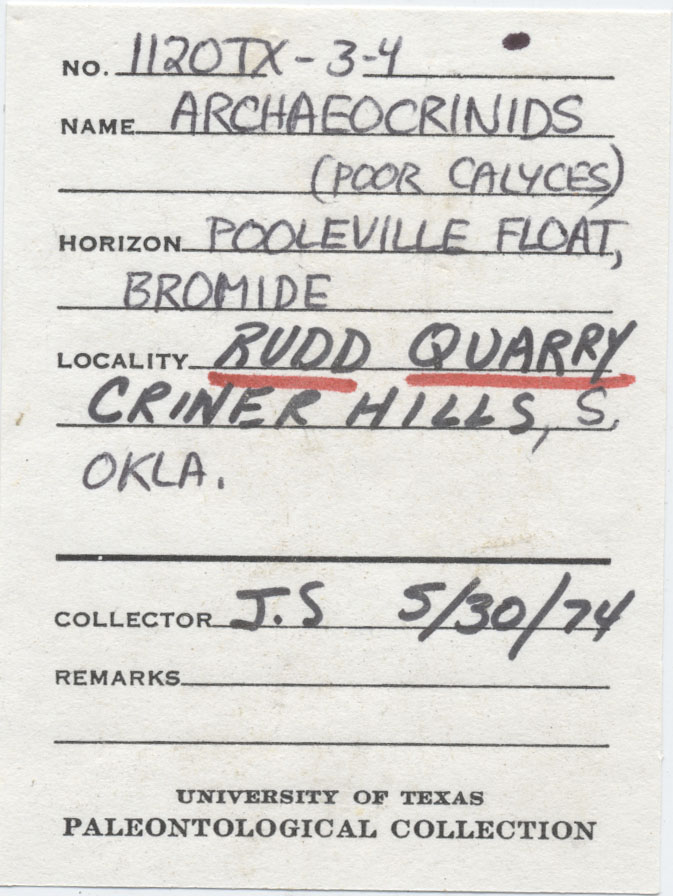 NO. 1120TX-3-4
NAME ARCHAEOCRINIDS
(POOR CALYCES)
HORIZON POOLEVILLE FLOAT,
BROMIDE
LOCALITY RUDD QUARRY
CRINER HILLS, S.
OKLA.
COLLECTOR J.S 5/30/74
REMARKS
UNIVERSITY OF TEXAS
PALEONTOLOGICAL COLLECTION